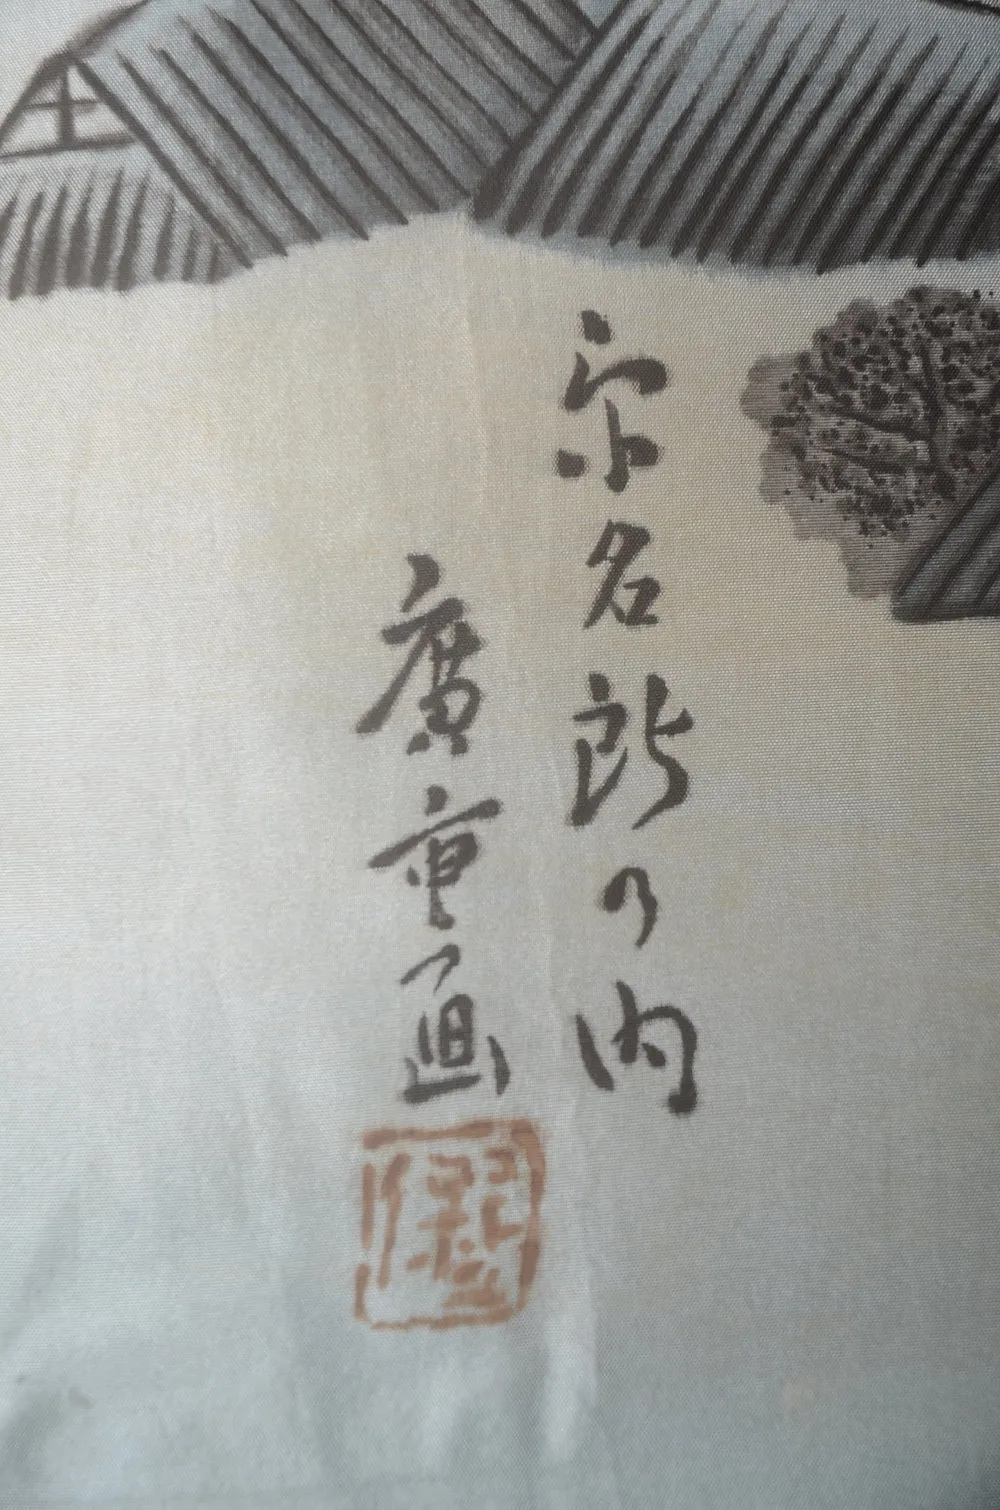 京名所の内
廣重画